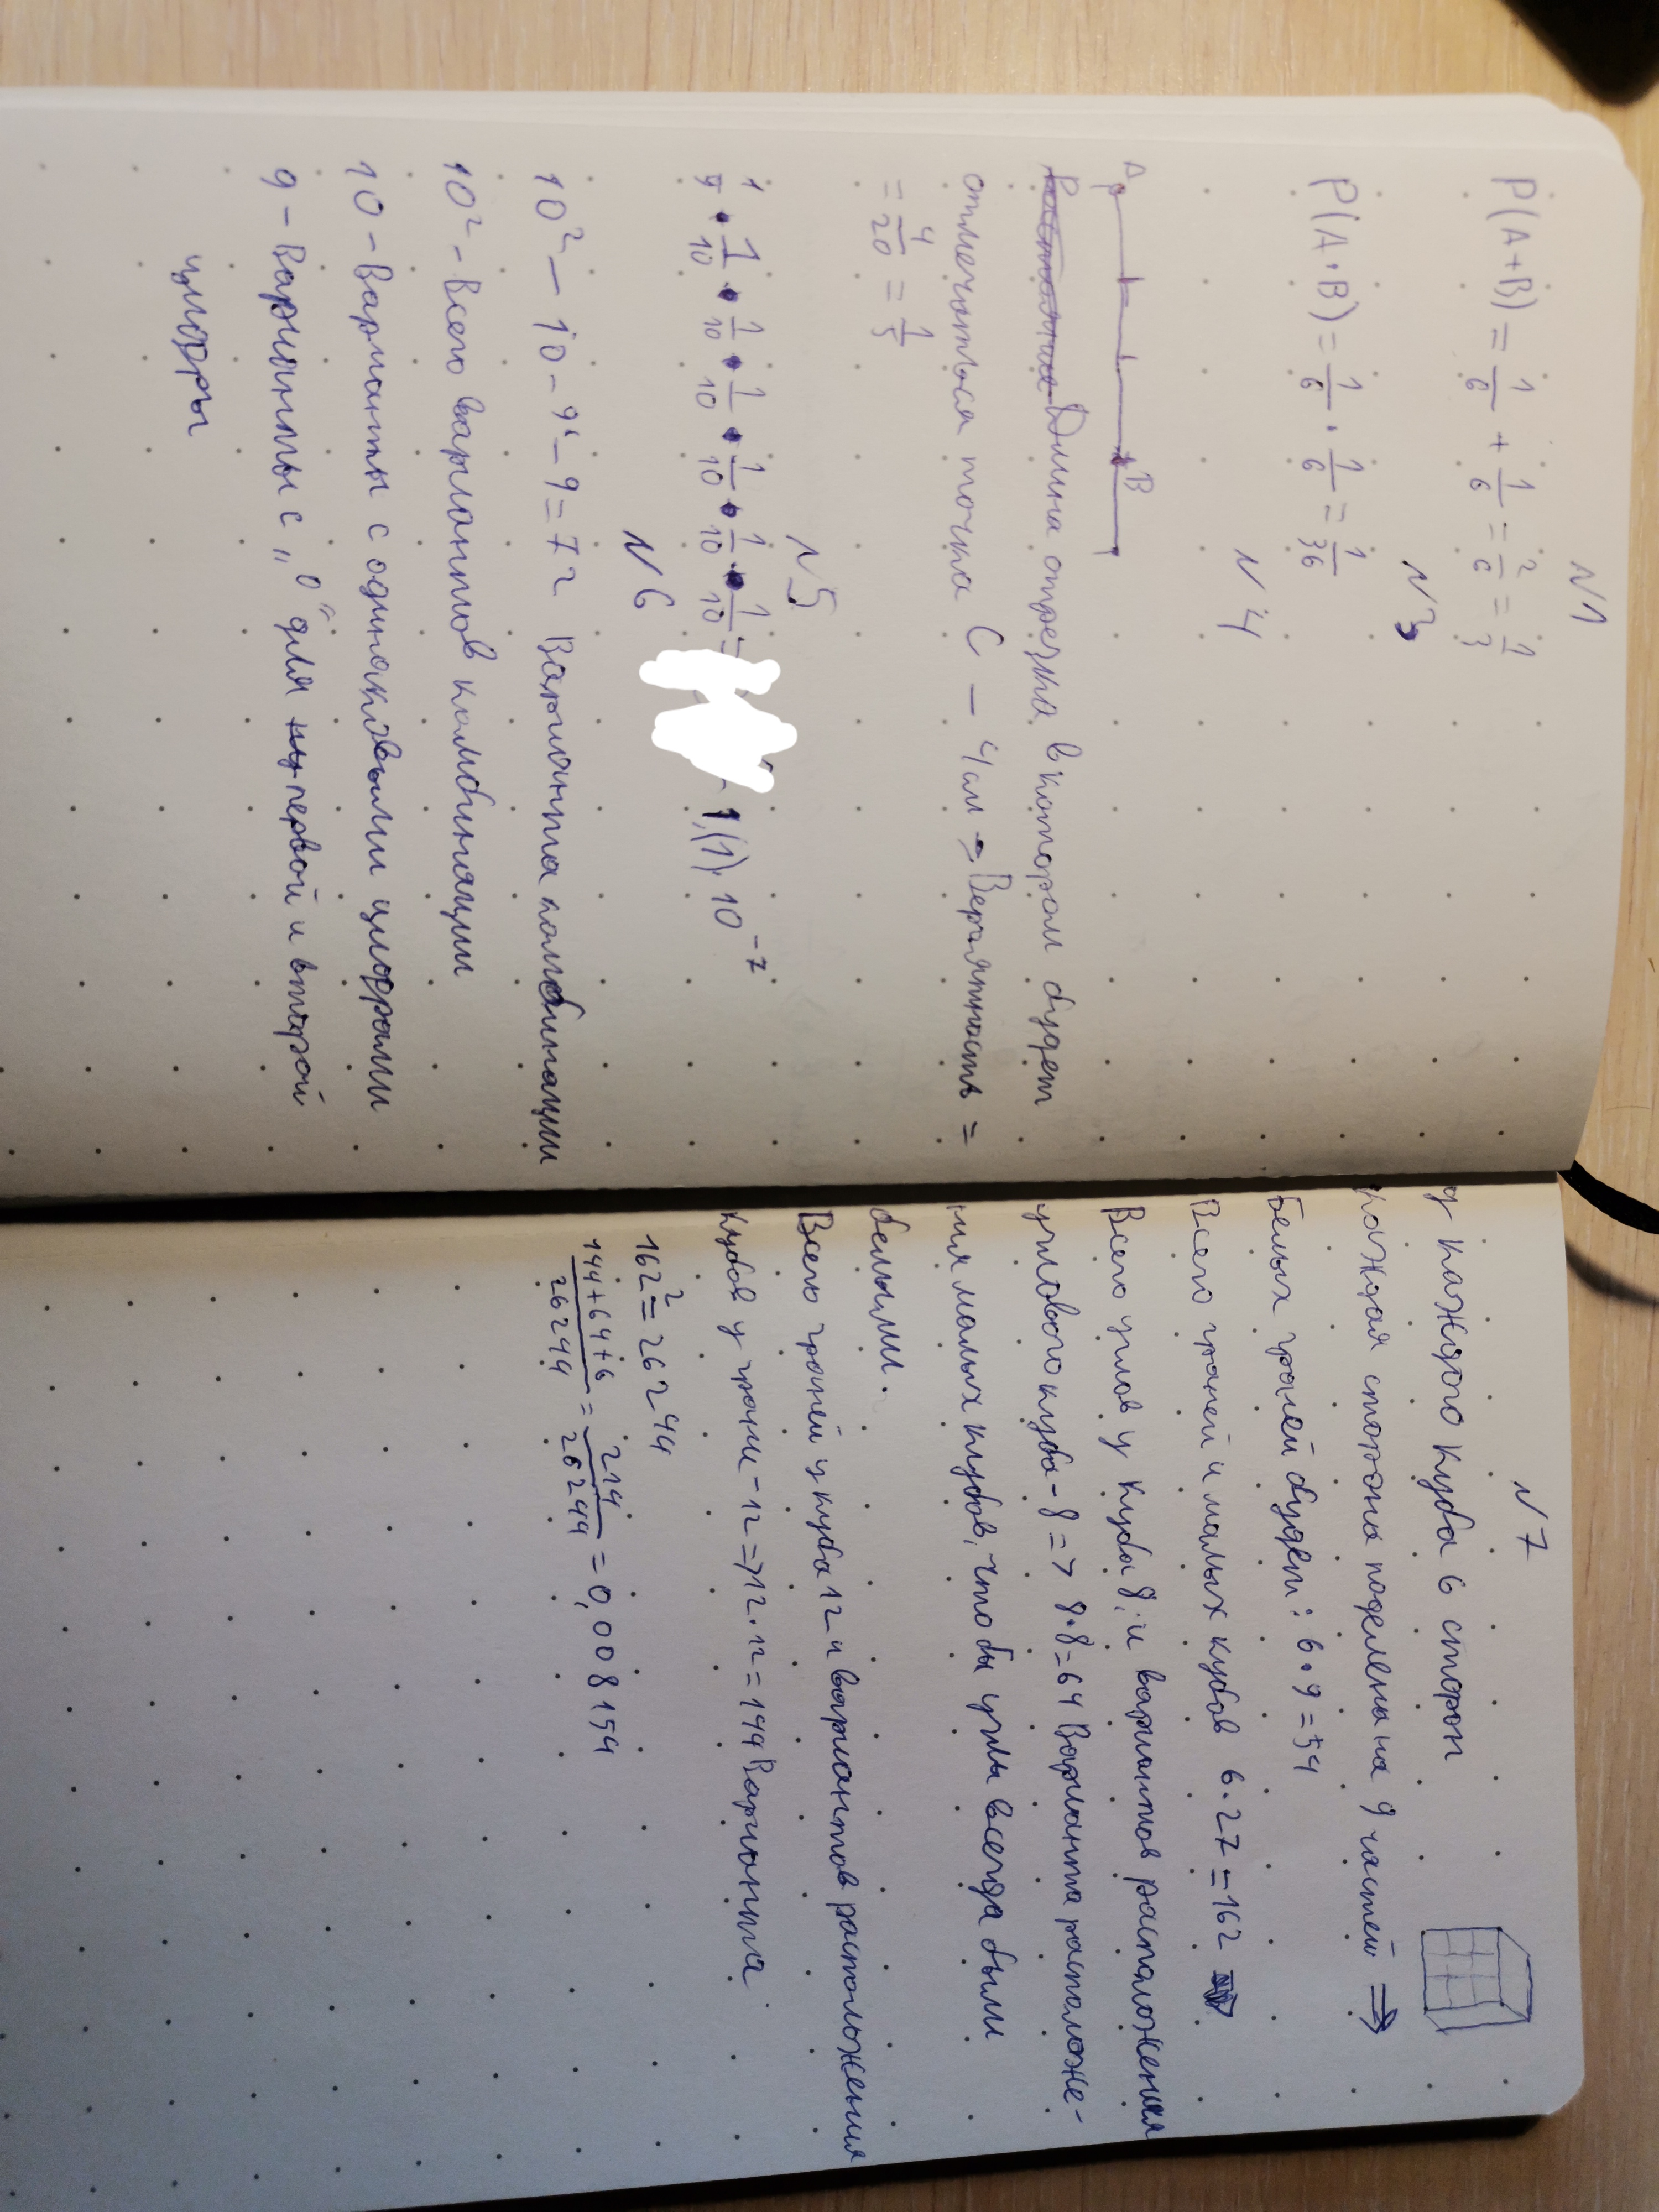 N1
P(A+B) = 1/6 + 1/6 = 2/6 = 1/3
N3
P(A·B) = 1/6 · 1/6 = 1/36
N4
A B
Длина отрезка в котором будет
отмечаться точка C – 4 см => Вероятность =
= 4/20 = 1/5
N5
1/9 · 1/10 · 1/10 · 1/10 · 1/10 · 1/10 · 1/10 = 1,(1)·10^-7
N6
10² – 10 – 9 – 9 = 72 Варианта комбинации
10² – Всего вариантов комбинации
10 – Варианты с одинаковыми цифрами
9 – Варианты с „0“ для первой и второй
цифры
N7
у каждого куба 6 сторон
каждая сторона поделена на 9 частей =>
Белых граней будет: 6·9=54
Всего граней и малых кубов 6·27=162
Всего углов у куба 8, и вариантов расположения
углового куба – 8 => 8·8=64 Варианта расположе-
ния малых кубов, чтобы углы всегда были
белыми.
Всего граней у куба 12 и вариантов расположения
кубов у грани – 12 => 12·12=144 Варианта
162²=26244
144+64+6/26244 = 214/26244 = 0,008154